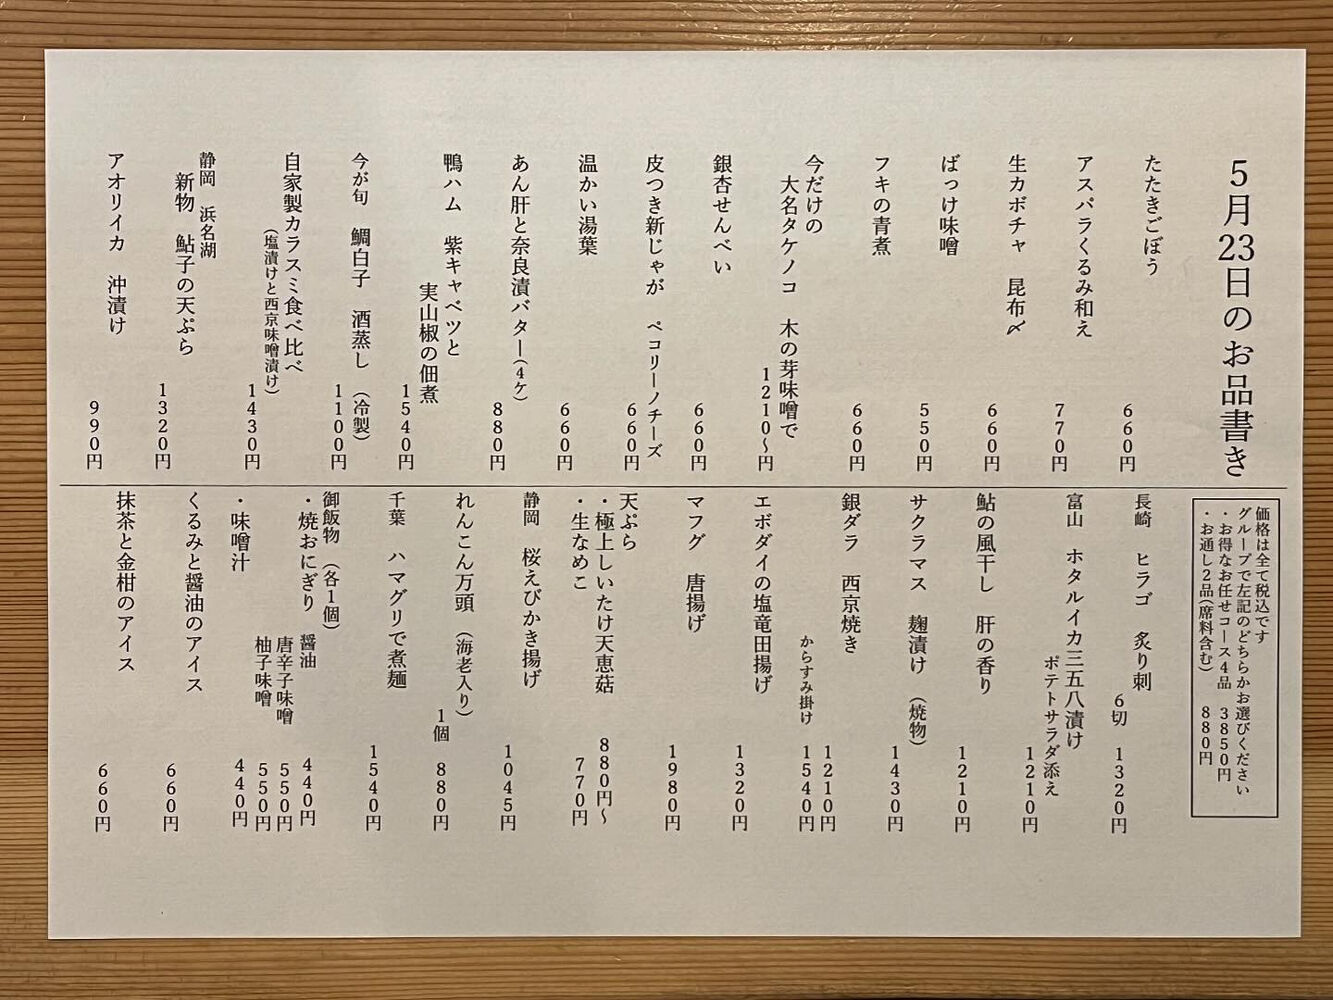 5月23日のお品書き
たたきごぼう
660円
アスパラくるみ和え
770円
生カボチャ 昆布〆
660円
ばっけ味噌
550円
フキの青煮
660円
今だけの
大名タケノコ 木の芽味噌で
1210〜円
銀杏せんべい
660円
皮つき新じゃが ペコリーノチーズ
660円
温かい湯葉
660円
あん肝と奈良漬バター(4ケ)
880円
鴨ハム 紫キャベツと
実山椒の佃煮
1540円
今が旬 鯛白子 酒蒸し (冷製)
1100円
自家製カラスミ食べ比べ
(塩漬けと西京味噌漬け)
1430円
静岡 浜名湖
新物 鮎子の天ぷら
1320円
アオリイカ 沖漬け
990円
価格は全て税込です
グループで左記のどちらかお選びください
・お得なお任せコース4品 3850円
・お通し2品(席料含む) 880円
長崎 ヒラゴ 炙り刺
6切 1320円
富山 ホタルイカ三五八漬け
ポテトサラダ添え
1210円
鮎の風干し 肝の香り
1210円
サクラマス 麹漬け (焼物)
1430円
銀ダラ 西京焼き
1210円
からすみ掛け 1540円
エボダイの塩竜田揚げ
1320円
マフグ 唐揚げ
1980円
天ぷら
・極上しいたけ天恵菇 880円〜
・生なめこ 770円
静岡 桜えびかき揚げ
1045円
れんこん万頭 (海老入り)
1個 880円
千葉 ハマグリで煮麺
1540円
御飯物 (各1個)
・焼おにぎり 醤油 440円
唐辛子味噌 550円
柚子味噌 550円
・味噌汁 440円
くるみと醤油のアイス
660円
抹茶と金柑のアイス
660円